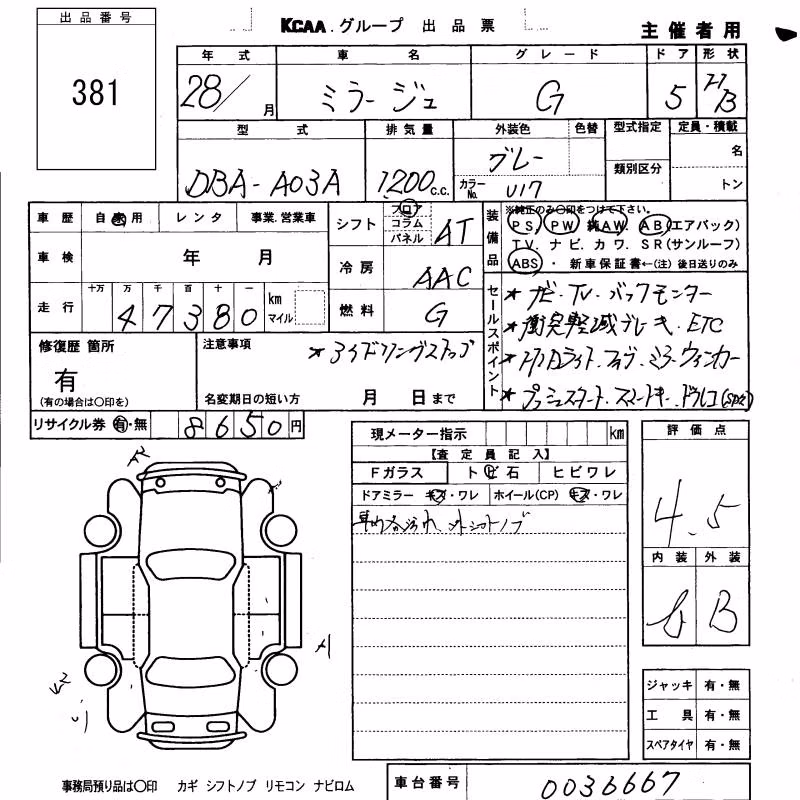 出品番号
381
KCAA.グループ 出品票
主催者用
年式 車名 グレード ドア 形状
28/ 月 ミラージュ G 5 H/B
型式 排気量 外装色 色替 型式指定 定員・積載
DBA-A03A 1200 c.c. グレー 類別区分 名
カラーNo. U17 トン
車歴 自家用 レンタ 事業.営業車
シフト フロア コラム パネル AT
車検 年 月
冷房 AAC
走行 十万 万 千 百 十 一 km マイル
47380
燃料 G
装備品
※純正のみ〇印をつけて下さい。
PS. PW 純AW. AB(エアバック)
TV. ナビ. カワ. SR(サンルーフ)
ABS ・ 新車保証書←(注)後日送りのみ
セールスポイント
★ナビ・TV・バックモニター
★衝突軽減ブレーキ. ETC
★HIDライト・フォグ・ミラーウィンカー
★プッシュスタート. スマートキー.
修復歴 箇所
有
(有の場合は〇印を)
注意事項
★アイドリングストップ
名変期日の短い方 月 日まで
リサイクル券 有・無 8650円
現メーター指示 km
【査定員記入】
Fガラス トビ石 ヒビワレ
ドアミラー キズ・ワレ ホイール(CP) キズ・ワレ
シフトノブ
評価点
4.5
内装 外装
B
ジャッキ 有・無
工具 有・無
スペアタイヤ 有・無
事務局預り品は〇印 カギ シフトノブ リモコン ナビロム
車台番号 0036667